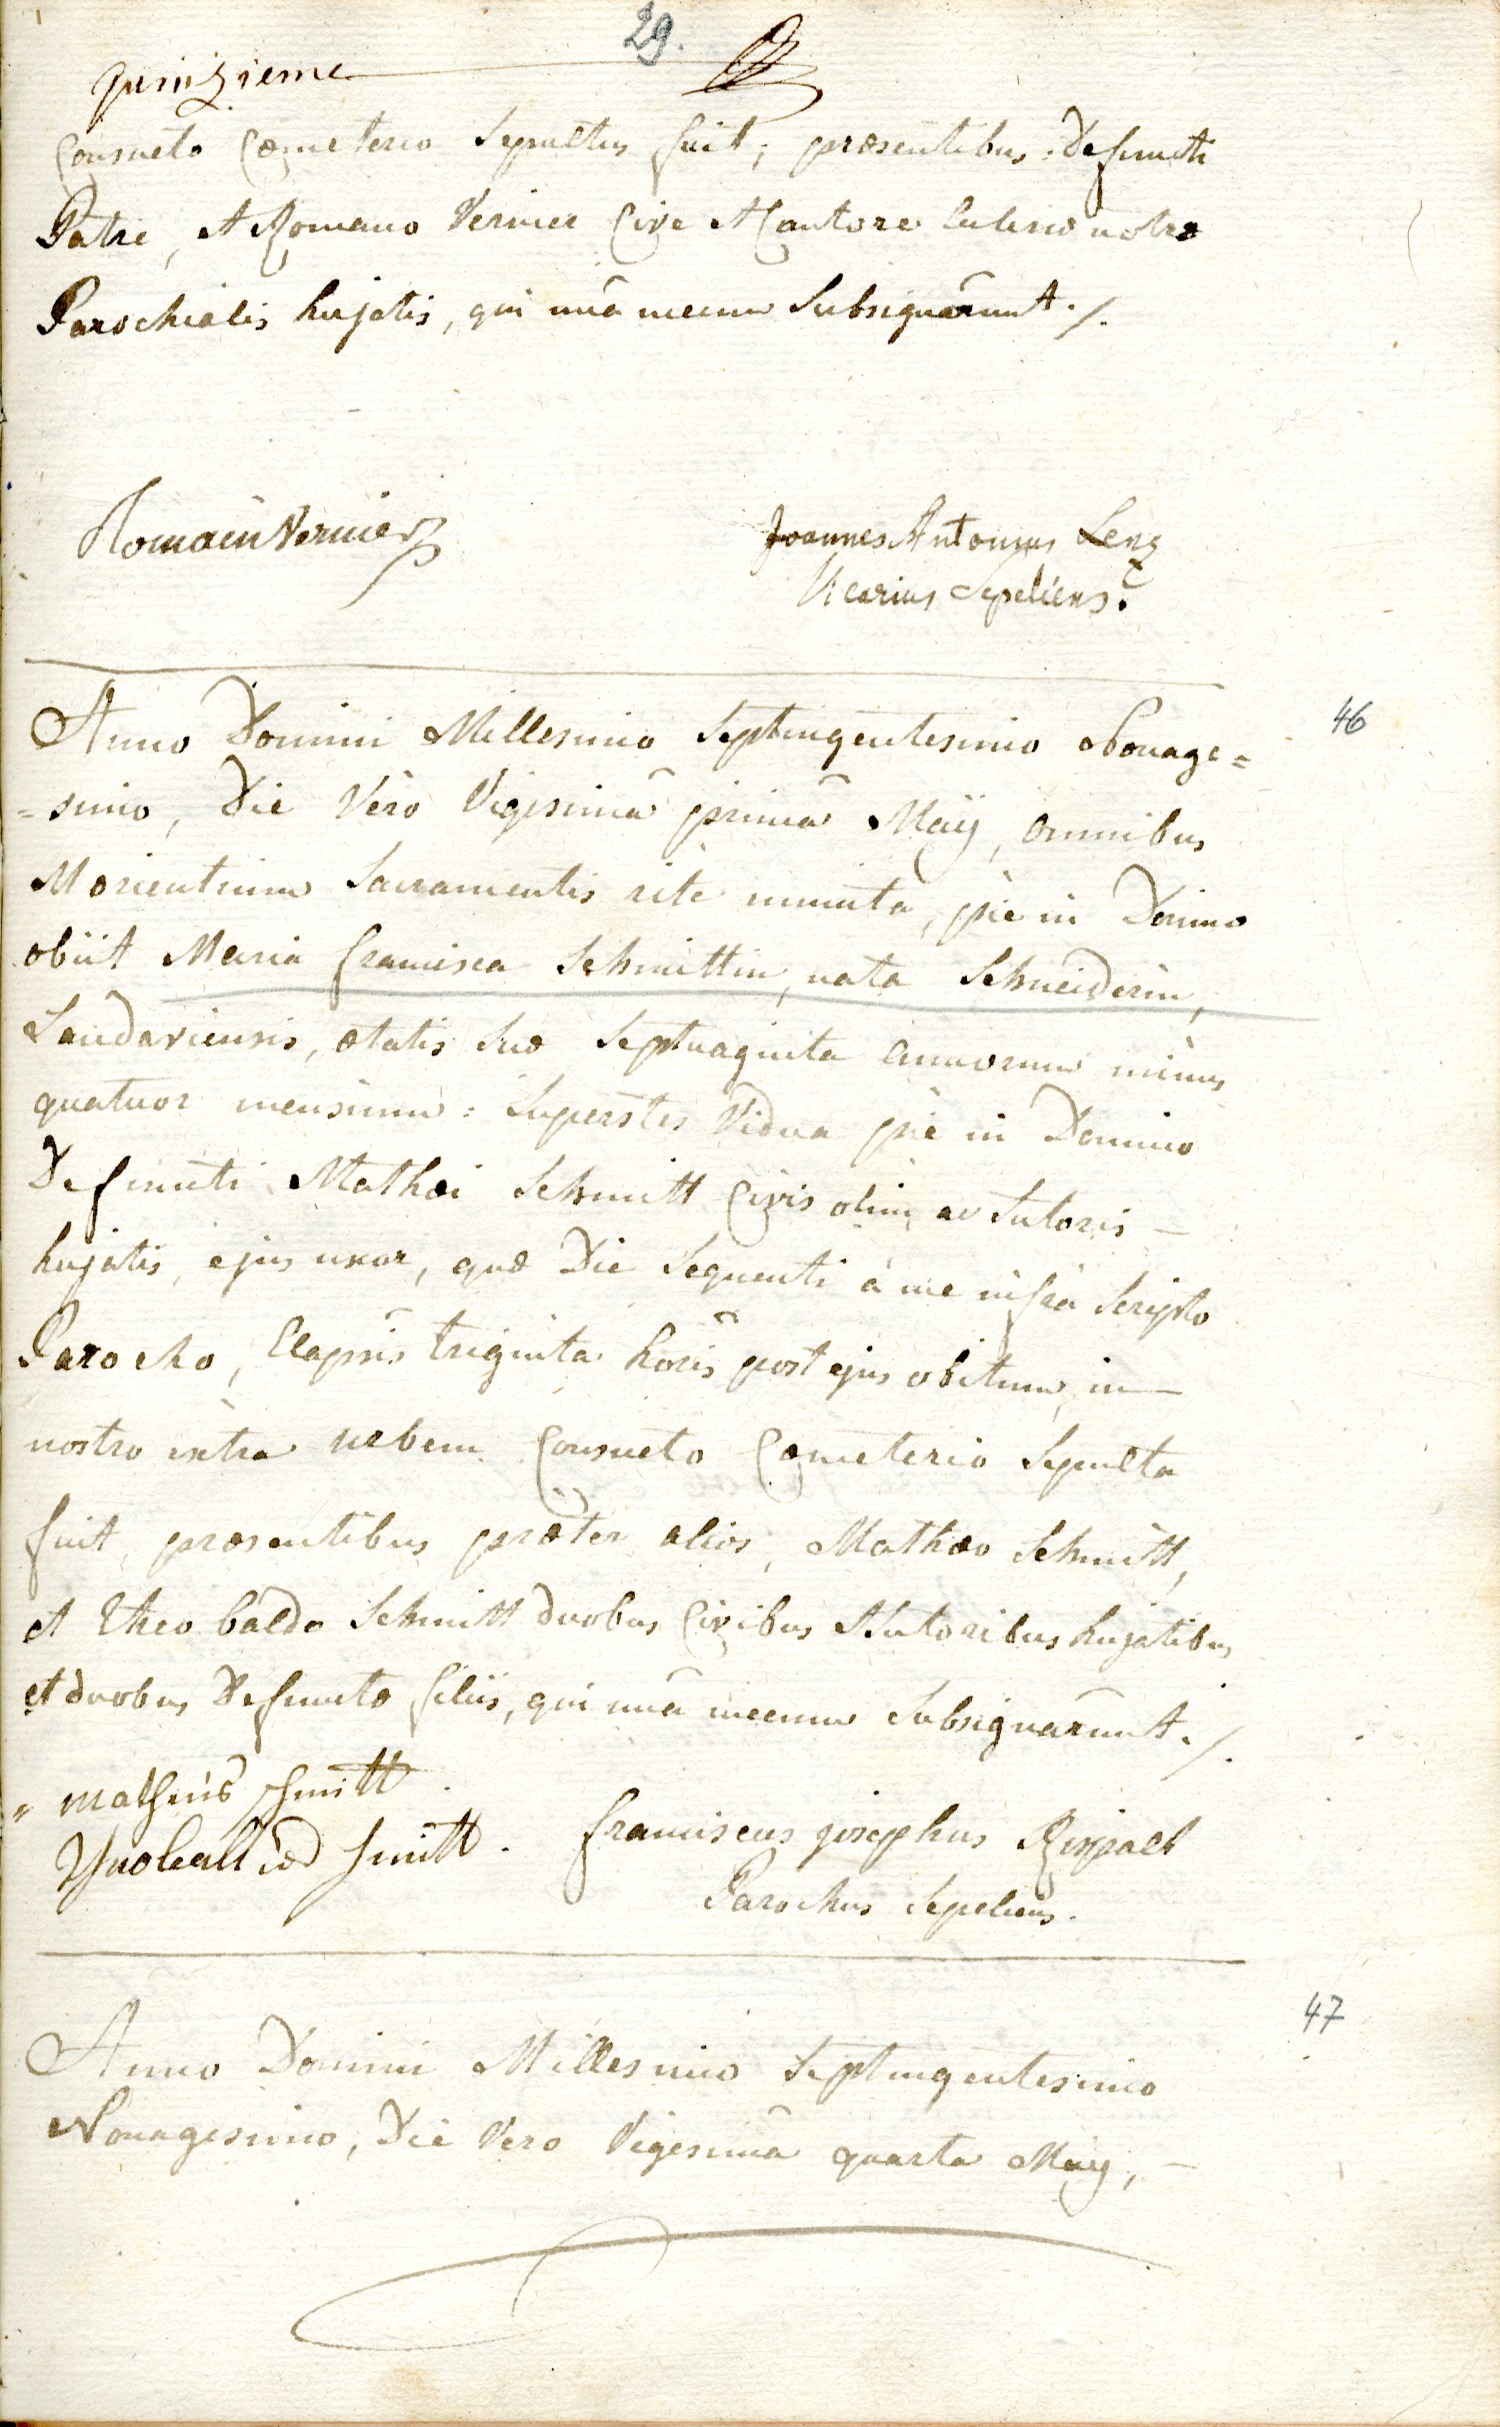 29.
quinzieme
Consueto Cœmeterio Sepultus fuit; præsentibus Defuncti
Patre, et Romano Vernier Cive et Cantore Ecclesiæ nostræ
Parochialis hujatis, qui unà mecum Subsignârunt ./.
Romain Vernier
Joannes Antonius Lenz
Vicarius Sepeliens.
46
Anno Domini Millesimo Septingentesimo Nonage=
=simo, Die Vero Vigesimâ primâ Maÿ, omnibus
Morientium Sacramentis rite munita, pie in Domino
obiit Maria francisca Schmittin, nata Schneiderin,
Landaviensis, ætatis suæ Septuaginta annorum minus
quatuor mensium: Superstes Vidua pie in Domino
Defuncti Mathæi Schmitt Civis olim ac Sutoris
hujatis, ejus uxor, quæ Die Sequenti à me infrà Scripto
Parocho, Elapsis triginta horis post ejus obitum, in
nostro extra urbem Consueto Cœmeterio Sepulta
fuit, præsentibus præter alios, Mathæo Schmitt,
et Theobaldo Schmitt duobus Civibus et Sutoribus hujatibus
et duobus Defunctæ filiis, qui unà mecum Subsignârunt ./.
matheus schmitt
franciscus josephus Rispalt
Parochus Sepeliens.
47
Anno Domini Millesimo Septingentesimo
Nonagesimo, Die Vero Vigesimâ quarta Maÿ,